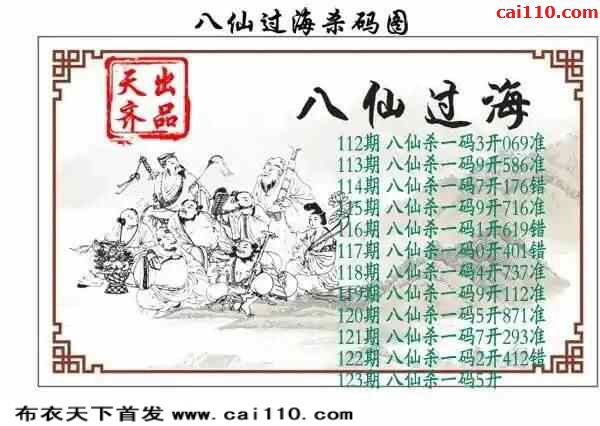 八仙过海杀码图
cai110.com
天齐出品
八仙过海
112期 八仙杀一码3开069准
113期 八仙杀一码9开586准
114期 八仙杀一码7开176错
115期 八仙杀一码9开716准
116期 八仙杀一码1开619错
117期 八仙杀一码0开401错
118期 八仙杀一码4开737准
119期 八仙杀一码9开112准
120期 八仙杀一码5开871准
121期 八仙杀一码7开293准
122期 八仙杀一码2开412错
123期 八仙杀一码5开
布衣天下首发 www.cai110.com